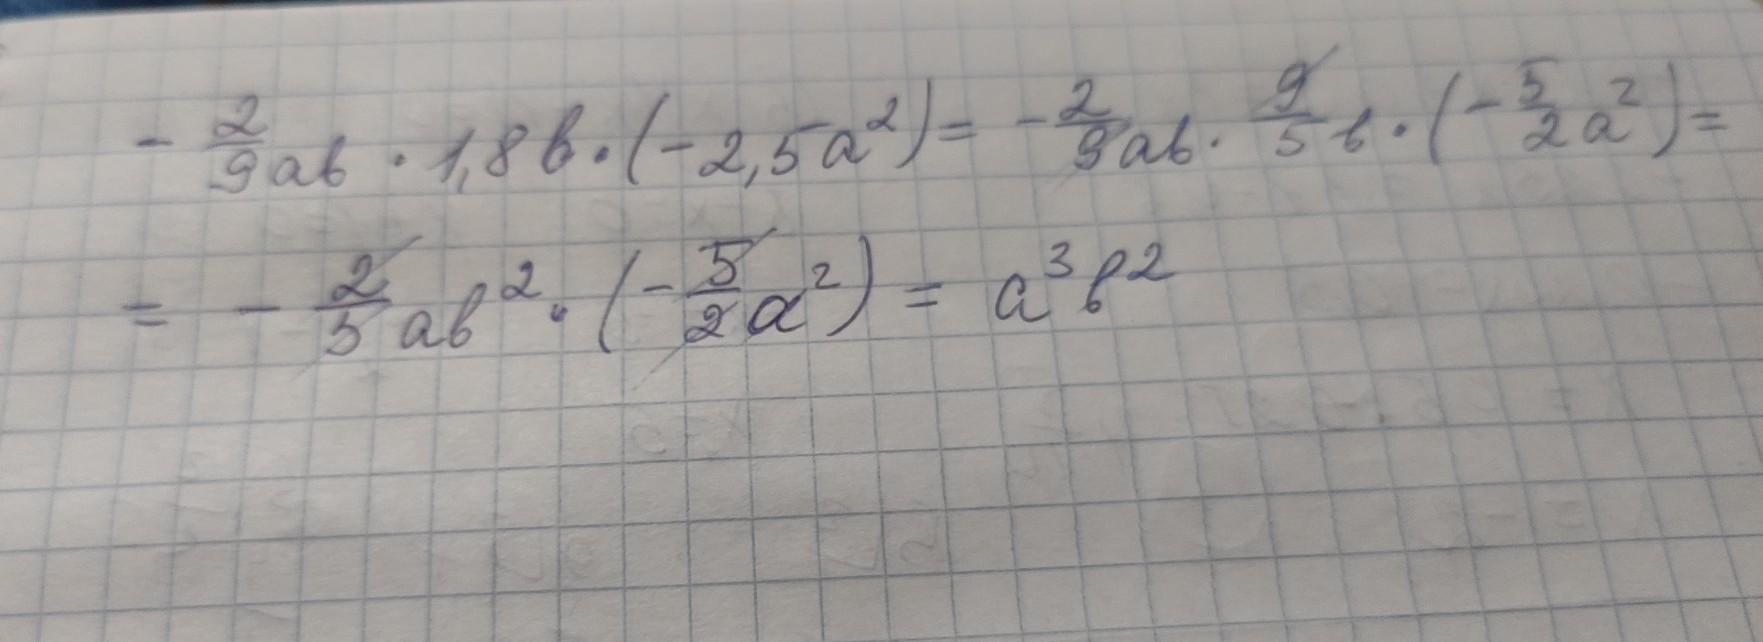 - 2/9 ab · 1,8b · (-2,5a²) = - 2/9 ab · 9/5 b · (- 5/2 a²) =
= - 2/5 ab² · (- 5/2 a²) = a³b²